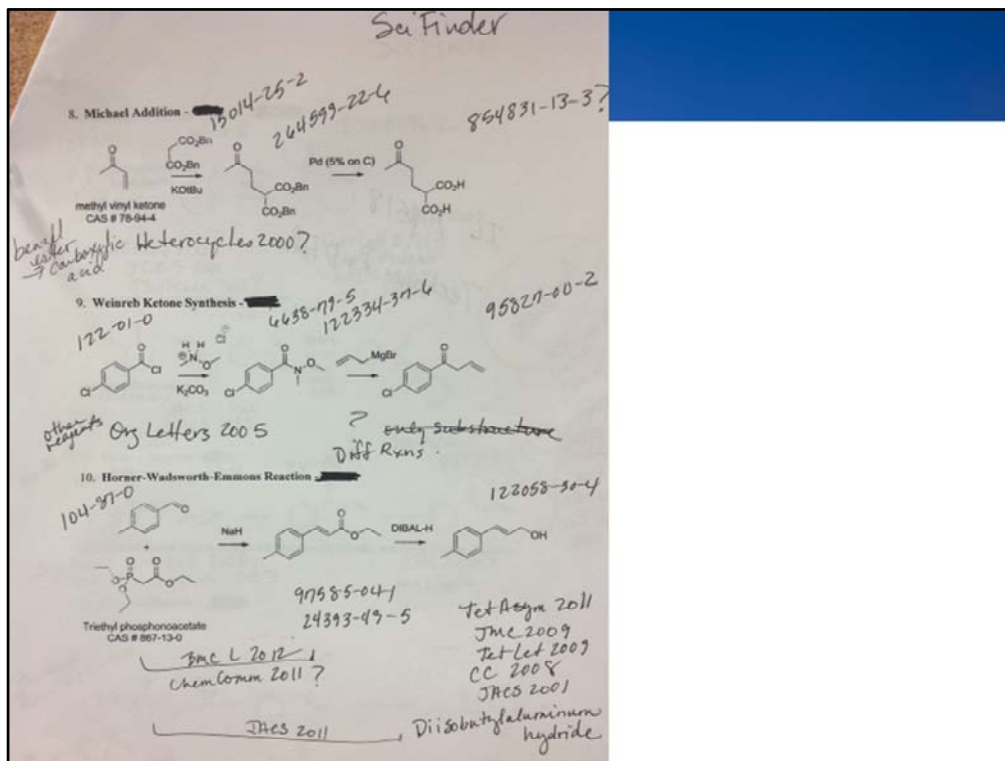 SciFinder
8. Michael Addition -
15014-25-2
264599-22-6
854831-13-3?
O
CO₂Bn
CO₂Bn
KOtBu
O
CO₂Bn
CO₂Bn
Pd (5% on C)
O
CO₂H
CO₂H
methyl vinyl ketone
CAS # 78-94-4
benzyl
ester
→ carboxylic
acid
Heterocycles 2000?
9. Weinreb Ketone Synthesis -
122-01-0
6638-79-5
122334-37-6
95827-00-2
O
Cl
Cl
H H
N
O
Cl
K₂CO₃
O
N
O
Cl
MgBr
O
Cl
other
reagents
Org Letters 2005
?
only substructure
Diff Rxns.
10. Horner-Wadsworth-Emmons Reaction -
104-87-0
122058-30-4
O
+
O
P
O
O
O
O
NaH
O
O
DIBAL-H
OH
Triethyl phosphonoacetate
CAS # 867-13-0
97585-04-1
24393-49-5
BMC L 2012
ChemComm 2011?
JACS 2011
Tet Asym 2011
JMC 2009
Tet Let 2009
CC 2008
JACS 2001
Diisobutylaluminum
hydride